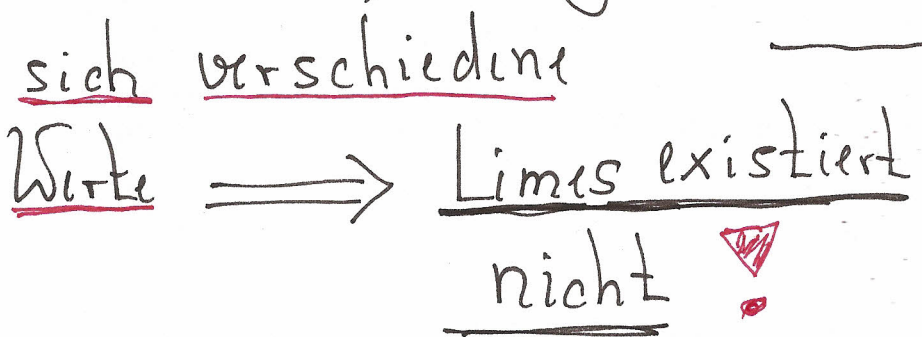 sich verschiedene
Werte ⟹ Limes existiert
nicht !